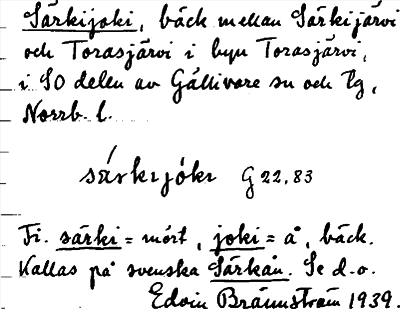 Särkijoki, bäck mellan Särkijärvi
och Torasjärvi i byn Torasjärvi,
i SO delen av Gällivare sn och tg,
Norrb. l.
särkijóki G 22,83
Fi. särki = mört, joki = å, bäck.
Kallas på svenska Särkån. Se d.o.
Edvin Brännström 1939.